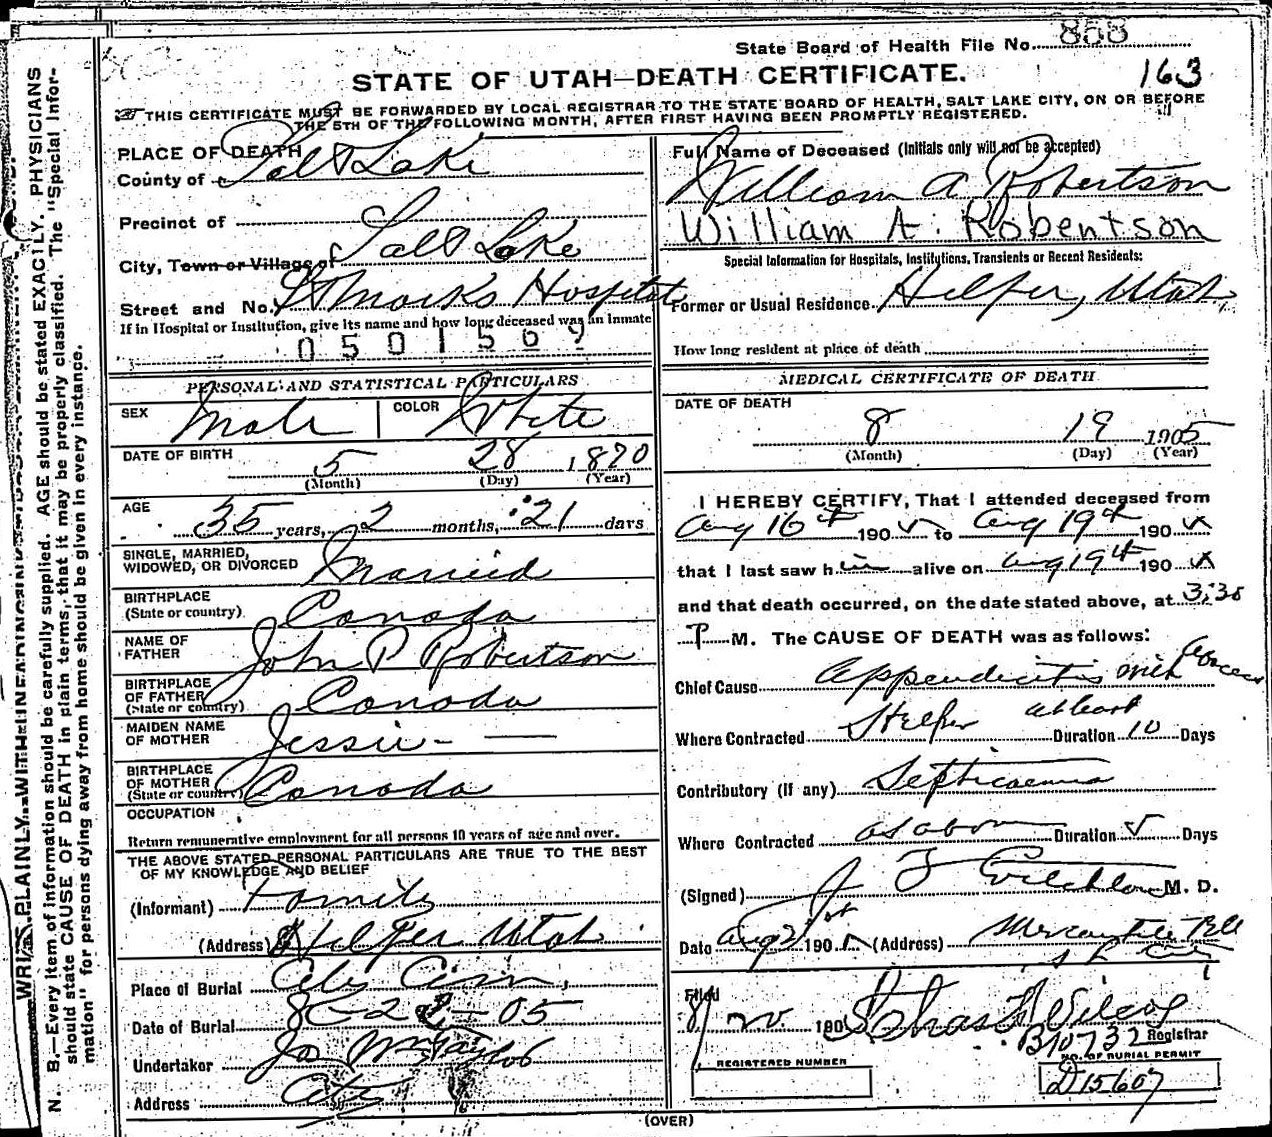 State Board of Health File No. 858
163
STATE OF UTAH—DEATH CERTIFICATE.
THIS CERTIFICATE MUST BE FORWARDED BY LOCAL REGISTRAR TO THE STATE BOARD OF HEALTH, SALT LAKE CITY, ON OR BEFORE
THE 5TH OF THE FOLLOWING MONTH, AFTER FIRST HAVING BEEN PROMPTLY REGISTERED.
PLACE OF DEATH
County of Salt Lake
Precinct of
City, Town or Village of Salt Lake
Street and No. St Marks Hospital
If in Hospital or Institution, give its name and how long deceased was an Inmate
0501569
PERSONAL AND STATISTICAL PARTICULARS
SEX Male COLOR White
DATE OF BIRTH 5 28 1870
(Month) (Day) (Year)
AGE 35 years, 2 months, 21 days
SINGLE, MARRIED,
WIDOWED, OR DIVORCED Married
BIRTHPLACE
(State or country) Canada
NAME OF
FATHER John P Robertson
BIRTHPLACE
OF FATHER
(State or country) Canada
MAIDEN NAME
OF MOTHER Jessie - —
BIRTHPLACE
OF MOTHER
(State or country) Canada
OCCUPATION
Return remunerative employment for all persons 10 years of age and over.
THE ABOVE STATED PERSONAL PARTICULARS ARE TRUE TO THE BEST
OF MY KNOWLEDGE AND BELIEF
(Informant) Family
(Address) Helper Utah
Place of Burial City Cem,
Date of Burial 8-22-05
Undertaker Jos
Address City
Full Name of Deceased (Initials only will not be accepted)
William A Robertson
William A. Robertson
Special Information for Hospitals, Institutions, Transients or Recent Residents:
Former or Usual Residence Helper, Utah,
How long resident at place of death
MEDICAL CERTIFICATE OF DEATH
DATE OF DEATH
8 19 1905
(Month) (Day) (Year)
I HEREBY CERTIFY, That I attended deceased from
Aug 16th 1905 to Aug 19th 1905
that I last saw him alive on Aug 19th 1905
and that death occurred, on the date stated above, at 3:30
P M. The CAUSE OF DEATH was as follows:
Chief Cause Appendicitis with abscess
Where Contracted Helper Duration at least 10 Days
Contributory (If any) Septicaemia
Where Contracted as above Duration 5 Days
(Signed) M. D.
Date Aug 21st 1905 (Address) Mercantile Bld
S L City
Filed 8/22 1905 Chas Wilcox
Registrar
B10732
REGISTERED NUMBER
NO. OF BURIAL PERMIT
D15607
(OVER)
N. B.—Every item of information should be carefully supplied. AGE should be stated EXACTLY. PHYSICIANS
should state CAUSE OF DEATH in plain terms, that it may be properly classified. The "Special Infor-
mation" for persons dying away from home should be given in every instance.